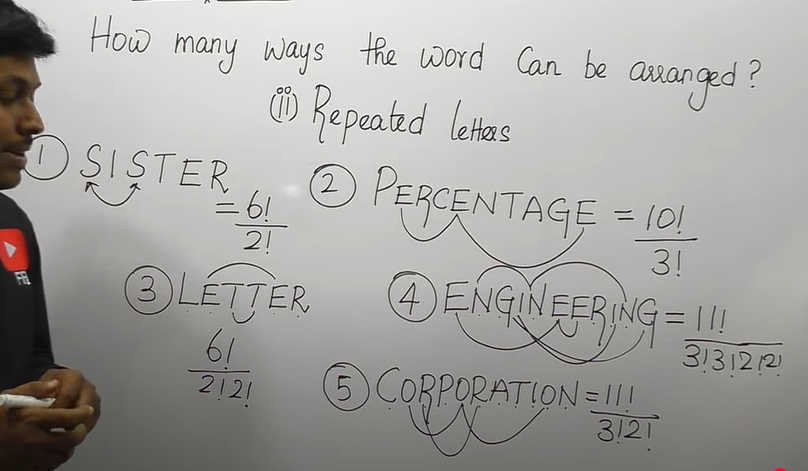 How many ways the word can be arranged?
(ii) Repeated letters
1 SISTER = 6!/2!
2 PERCENTAGE = 10!/3!
3 LETTER 6!/2!2!
4 ENGINEERING = 11!/3!3!2!2!
5 CORPORATION = 11!/3!2!